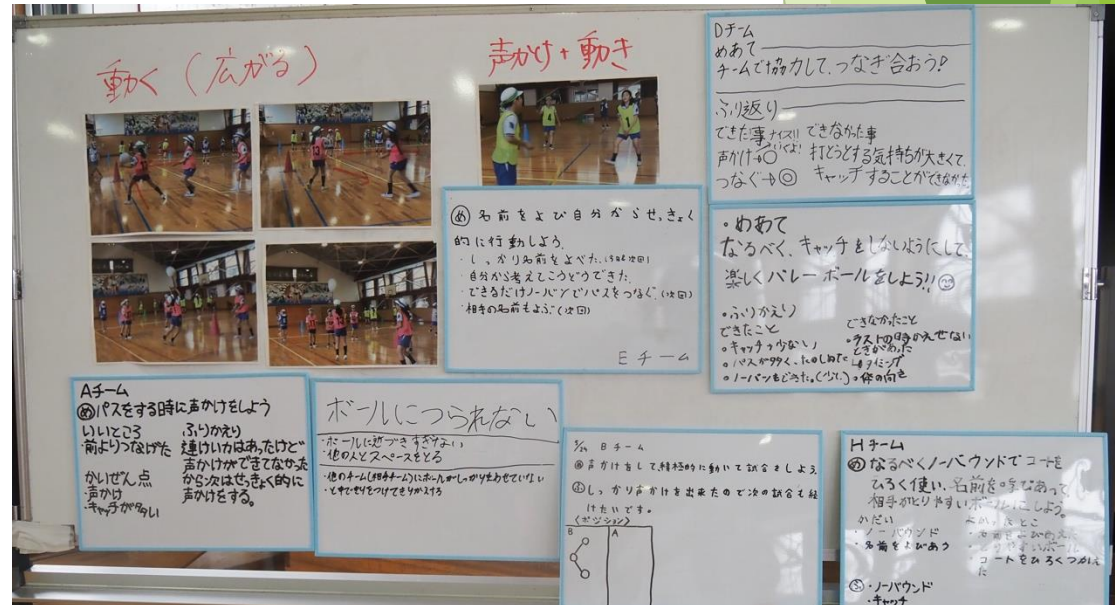 動く(広がる)
声かけ+動き
Dチーム
めあて
チームで協力して、つなぎ合おう!
ふり返り
できた事 ナイス!! できなかった事
声かけ→○ 打とうとする気持ちが大きくて、
つなぐ→◎ キャッチすることができなかった
め 名前をよび自分からせっきょく
的に行動しよう。
・しっかり名前をよべた。
・自分から考えてこうどうできた
・できるだけノーバンでパスをつなぐ。(次回)
・相手の名前もよぶ(次回)
Eチーム
・めあて
なるべく、キャッチをしないようにして
楽しくバレーボールをしよう!!
・ふりかえり
できたこと
・キャッチっ少ない
・パスが多く、
・ノーバンもできた。
できなかったこと
・ラストの時かえせない
ときがあった
・体の向き
Aチーム
め パスをする時に声かけをしよう
いいところ
・前よりつなげた
かいぜん点
・声かけ
・キャッチが多い
ふりかえり
連けいかはあったけど
声かけができてなかった
から次はせっきょく的に
声かけをする。
ボールにつられない
・ボールに近づきすぎない
・他の人とスペースをとる
・他のチーム(相手チーム)にボールがしっかり
Bチーム
め 声かけをして、積極的に動いて試合をしよう
ふ しっかり声かけを出来たので次の試合も続
けたいです。
<ポジション>
B A
Hチーム
め なるべくノーバウンドでコートを
ひろく使い、名前を呼びあって、
相手がとりやすいボールにしよう。
かだい
・ノーバウンド
・名前をよびあう
よかったとこ
・名前をよびあえた
・とりやすいボール
・コートをひろくつかえ
た
ふ ・ノーバウンド
・キャッチ